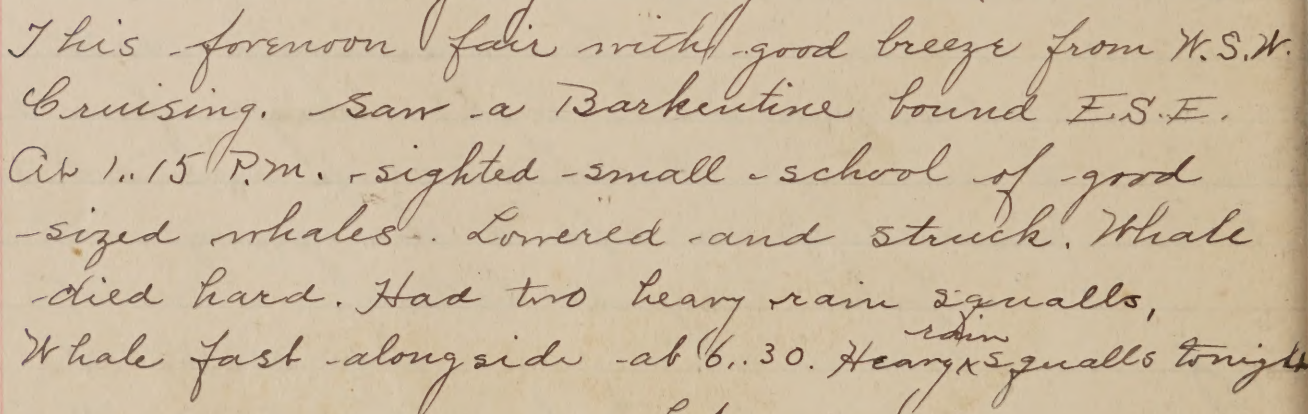 This forenoon fair with good breeze from W.S.W.
Cruising. Saw a Barkentine bound E.S.E.
At 1..15 P.M. sighted small school of good
sized whales. Lowered and struck. Whale
died hard. Had two heavy rain squalls,
Whale fast alongside at 6..30. Heavy rain squalls tonight